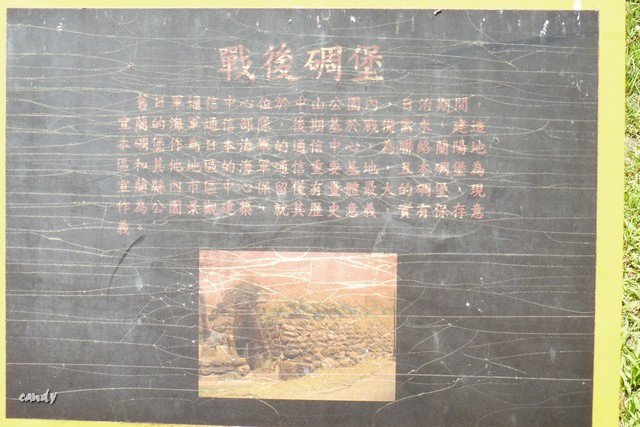 戰後碉堡
舊日軍通信中心位於中山公園內，日治期間，
宜蘭的海軍通信部隊，後期基於戰備 ，建造
本碉堡作為日本海軍的通信中心，為聯絡蘭陽地
區和其他地區的海軍通信重要基地，本碉堡為
宜蘭縣內市區中保留僅有量體最大的碉堡，現
作為公園景觀建築，就其歷史意義，實有保存意
義。
candy